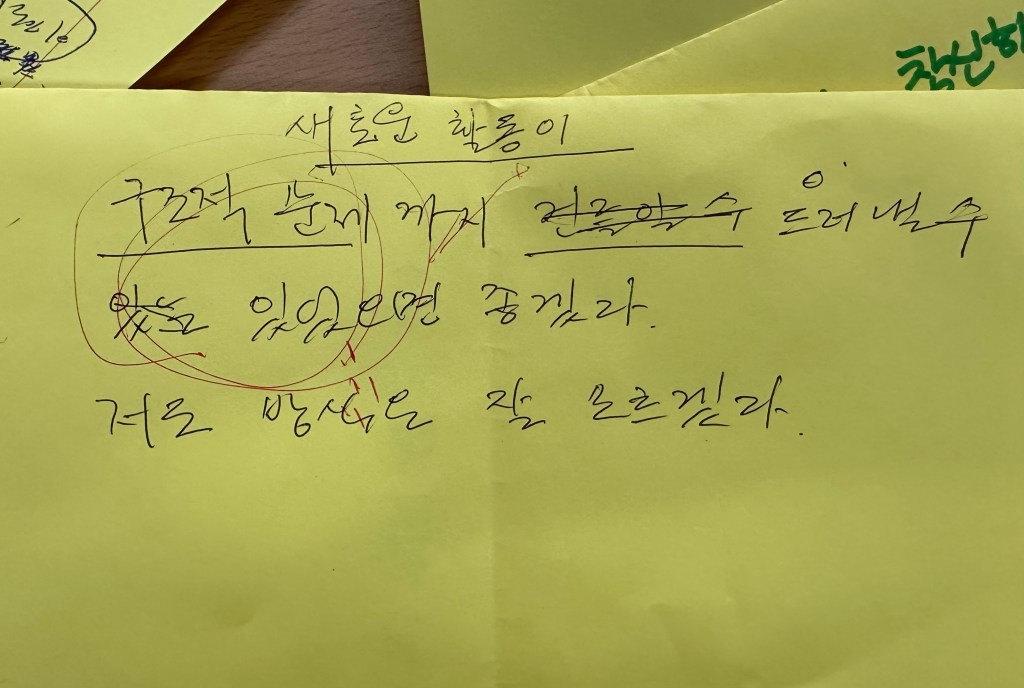 참신하
새로운 활동이
구조적 문제 까지 건들일 수 드러낼 수
있는 있있으면 좋겠다.
저도 방식은 잘 모르겠다.